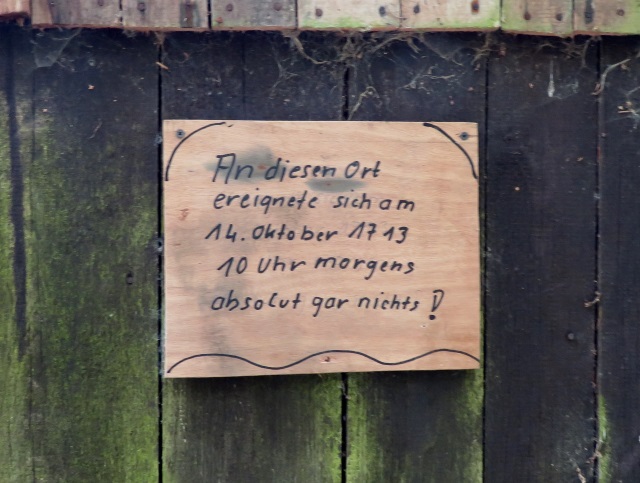 An diesen Ort
ereignete sich am
14. Oktober 1713
10 Uhr morgens
absolut gar nichts!